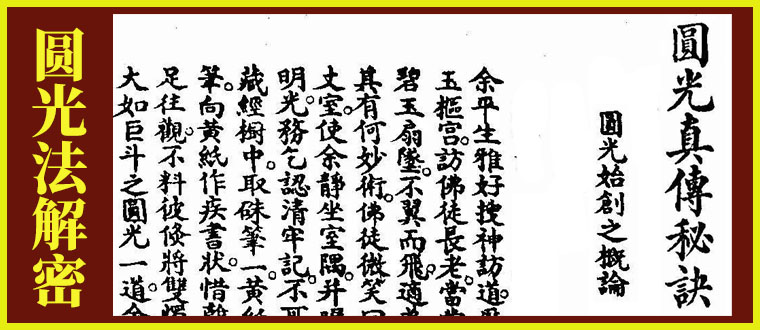 圆光法解密
圓光真傳秘訣
圓光始創之概論
余平生雅好搜神訪道。
玉樞宮。訪佛徒長老。當
碧玉扇墜。不翼而飛。適
其有何妙術。佛徒微笑曰
丈室。使余靜坐室隅。并
明光。務乞認清牢記。不
藏經櫥中。取硃筆一。黃
筆。向黃紙作疾書狀。惜
足往觀。不料彼倏將雙
大如巨斗之圓光一道